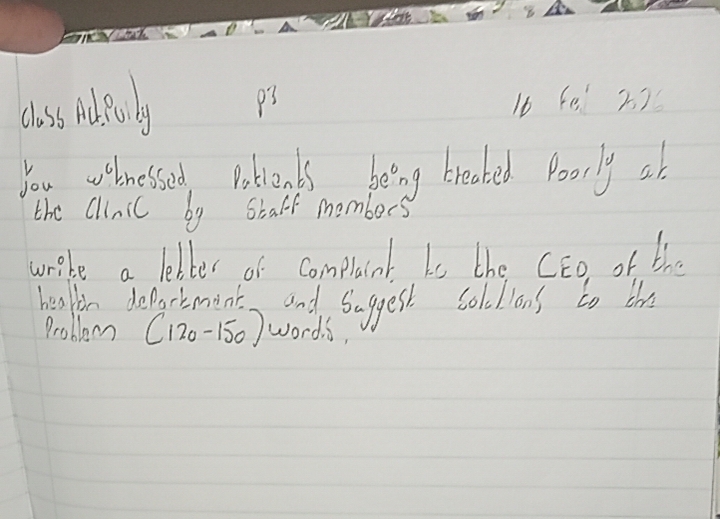 Class Activity P3 16 Feb 2026
You witnessed Patients being treated Poorly at
the Clinic by Staff members
write a letter of Complaint to the CEO of the
health department and Suggest Solutions to the
Problem (120-150) words.